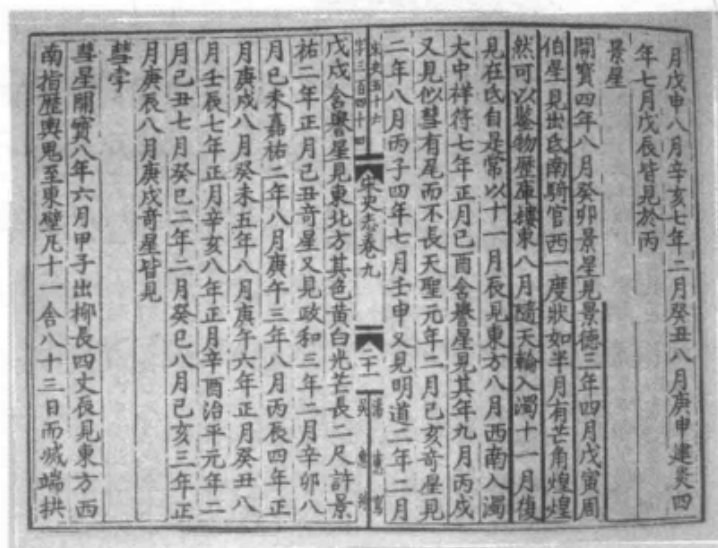 月戊申八月辛亥七年二月癸丑八月庚申建炎四
年七月戊辰皆見於丙
景星
開寶四年八月癸卯景星見景德三年四月戊寅周
伯星見出氐南騎官西一度狀如半月有芒角煌煌
然可以鑒物歷庫樓東八月隨天輪入濁十一月復
見在氐自是常以十一月辰見東方八月西南入濁
大中祥符七年正月己酉含譽星見其年九月丙戌
又見似彗有尾而不長天聖元年二月己亥奇星見
二年八月丙子四年七月壬申又見明道二年二月
宋史五十六
字三百四十四
宋史志卷九
二十一
戊戌含譽星見東北方其色黃白光芒長二尺許景
祐二年正月己丑奇星又見政和三年二月辛卯八
月己未嘉祐二年八月庚午三年八月丙辰四年正
月庚戌八月癸未五年八月庚午六年正月癸丑八
月壬辰七年正月辛亥八年正月辛酉治平元年二
月己丑七月癸巳二年二月癸巳八月己亥三年正
月庚辰八月庚戌奇星皆見
彗孛
彗星開寶八年六月甲子出柳長四丈辰見東方西
南指歷輿鬼至東壁凡十一舍八十三日而滅端拱